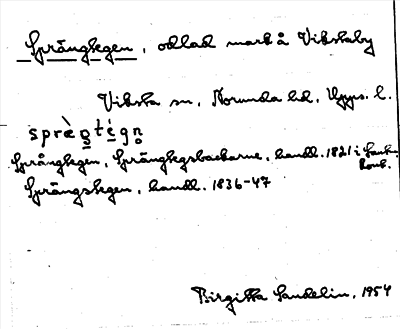 Sprängtegen, odlad mark å Viksta­by
Viksta sn, Norunda hd, Upps. l.
sprängtegen, Sprängtegsbackarne, handl. 1821 i Lantm.
kont.
Sprängstegen, handl. 1836-47
Birgitta Sandelin, 1954